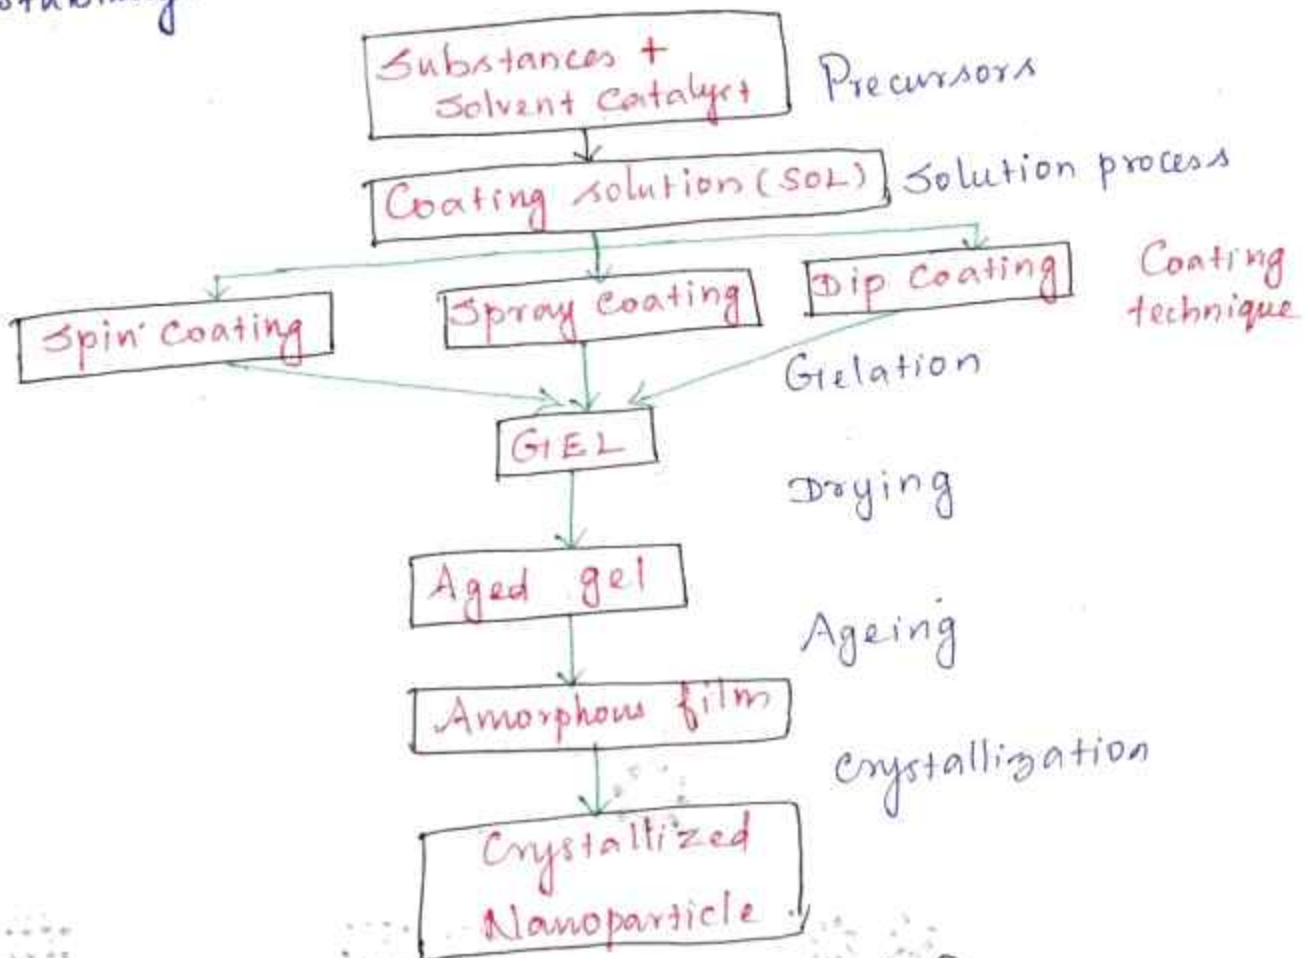 Substances +
Solvent Catalyst
Precursors
Coating solution (SOL)
Solution process
Spin Coating
Spray Coating
Dip Coating
Coating
technique
Gelation
GEL
Drying
Aged gel
Ageing
Amorphous film
Crystallization
Crystallized
Nanoparticle